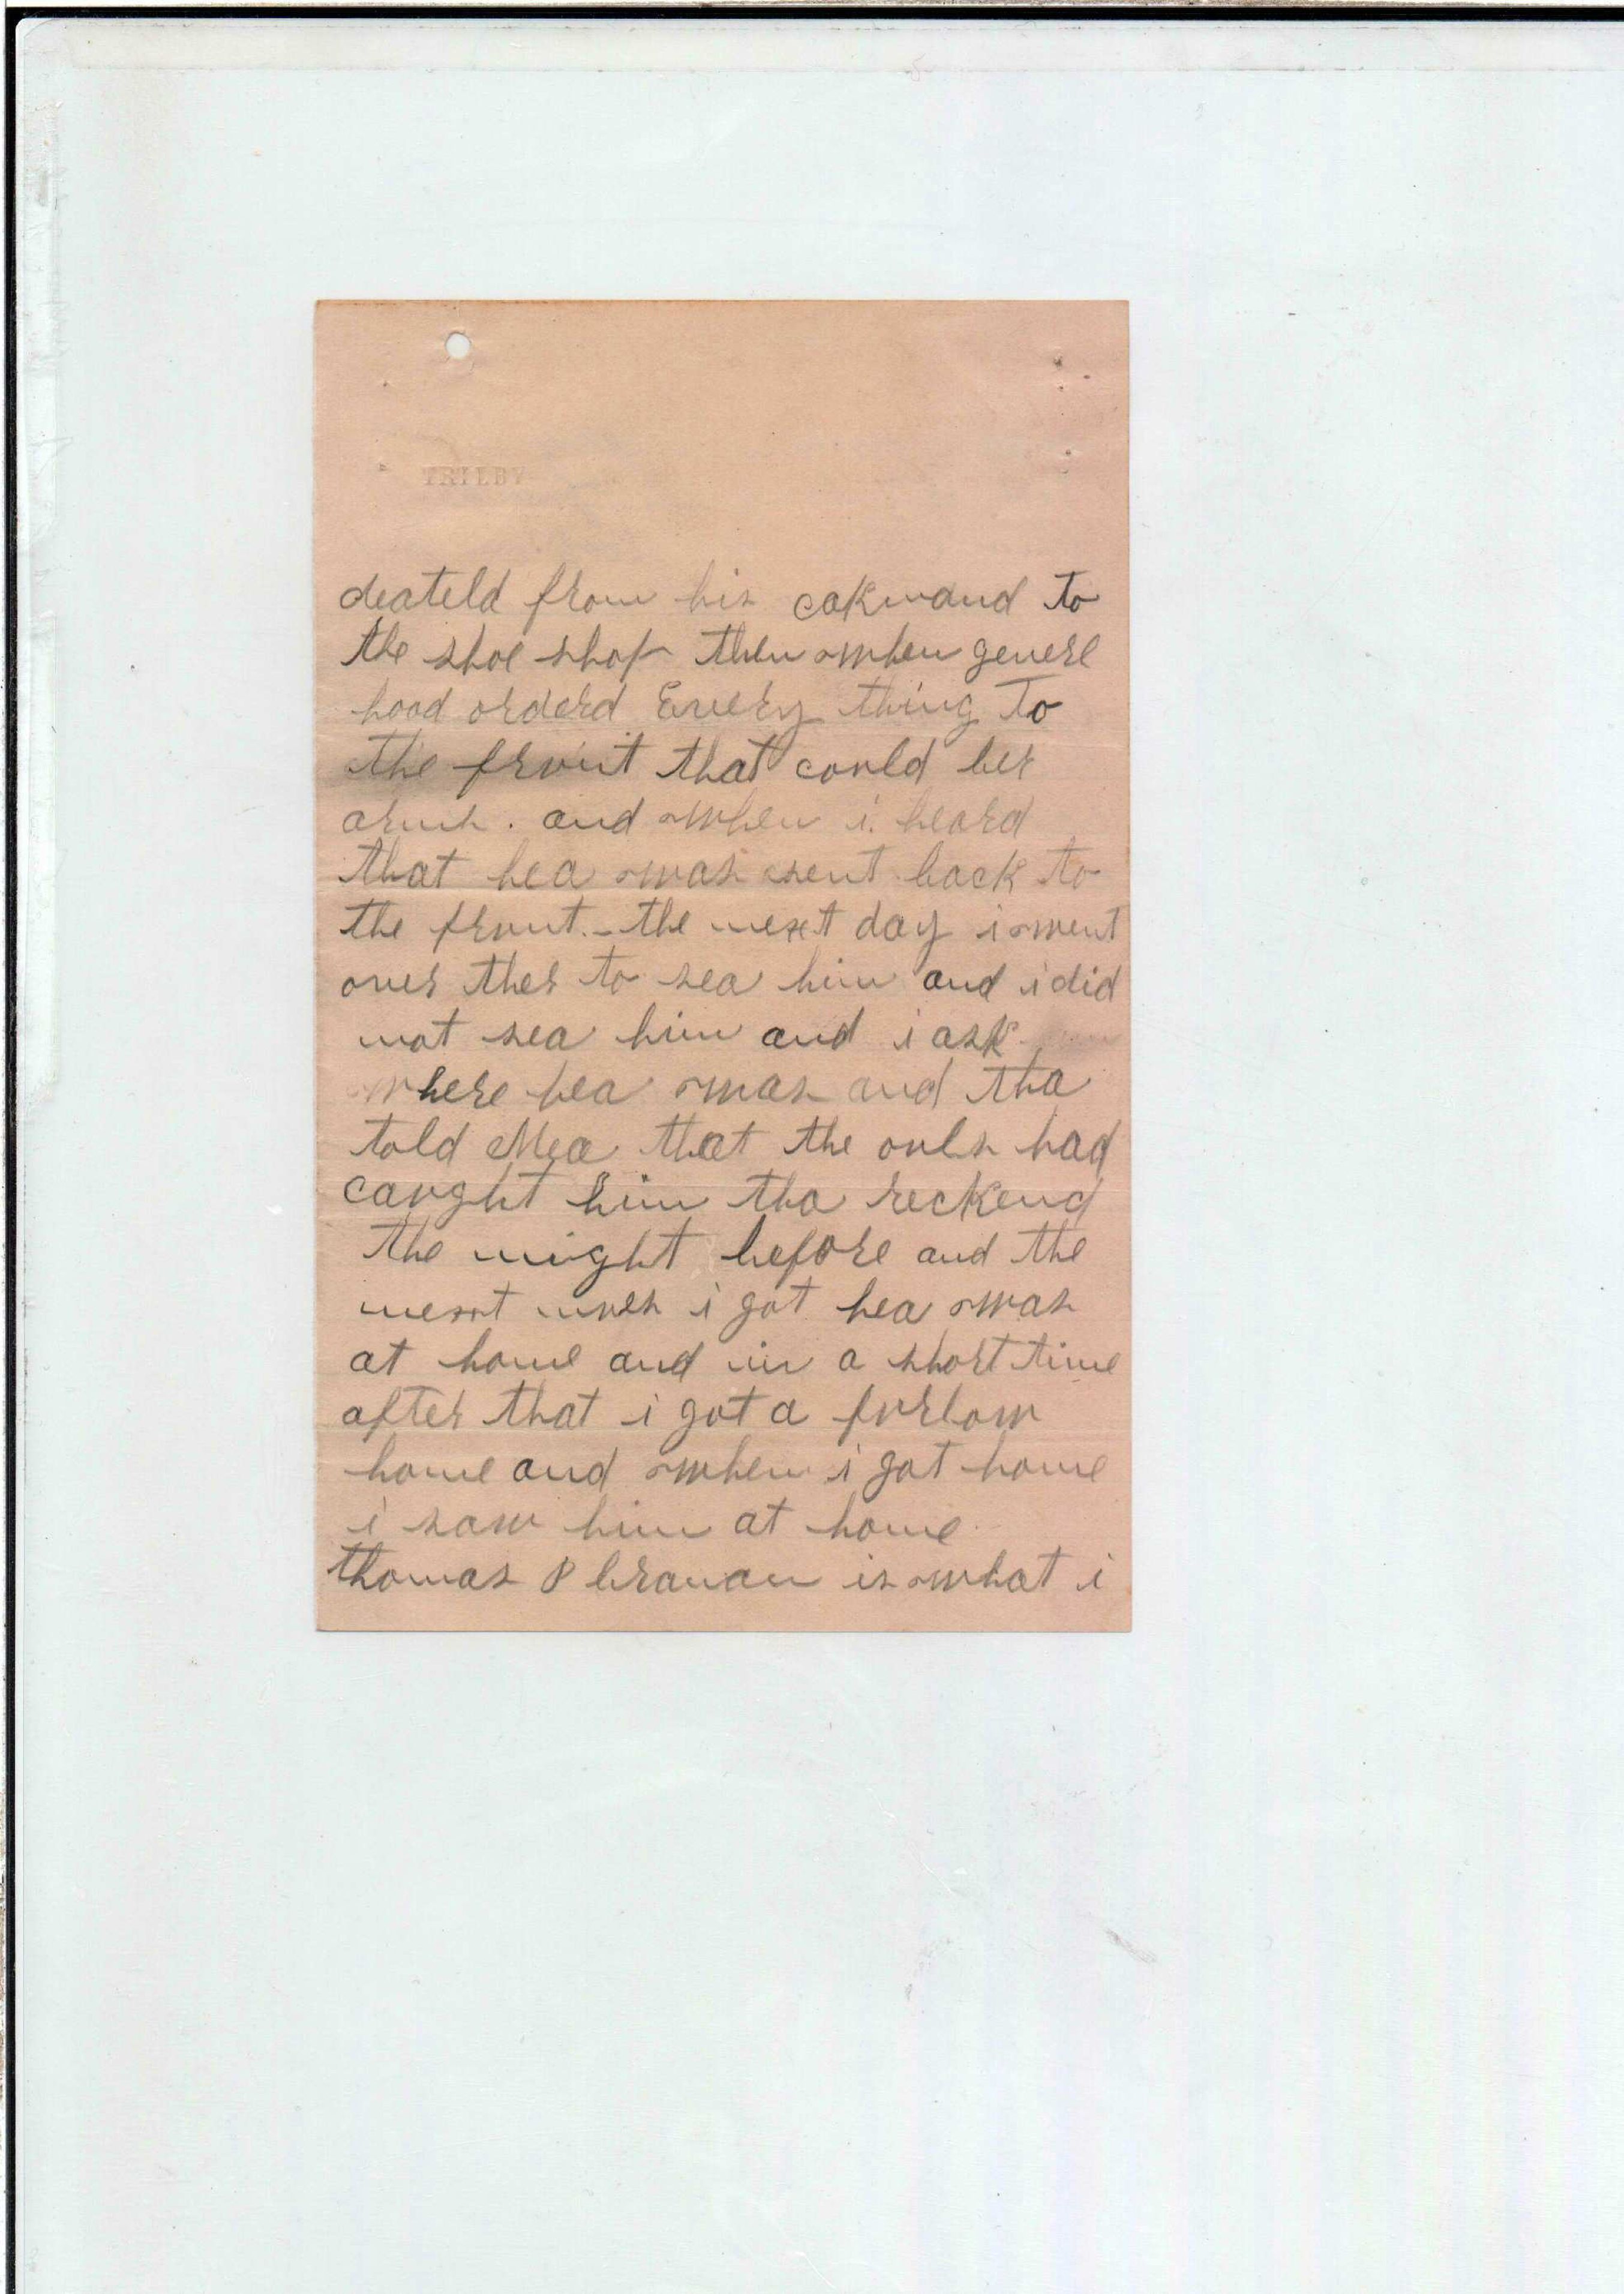 TRILBY
deateld from his cokmand to
the shoe shop then when generl
hood orderd Every thing To
the front that could ber
arms. and when i heard
that hea was sent back to
the front. - the next day i went
over ther to sea him and i did
not sea him and i ask
where hea was and tha
told Mea that the owls had
caught him tha reckend
the night before and the
next nws i got hea was
at home and in a short time
after that i got a furlow
home and when i got home
i saw him at home
thomas P branan is what i